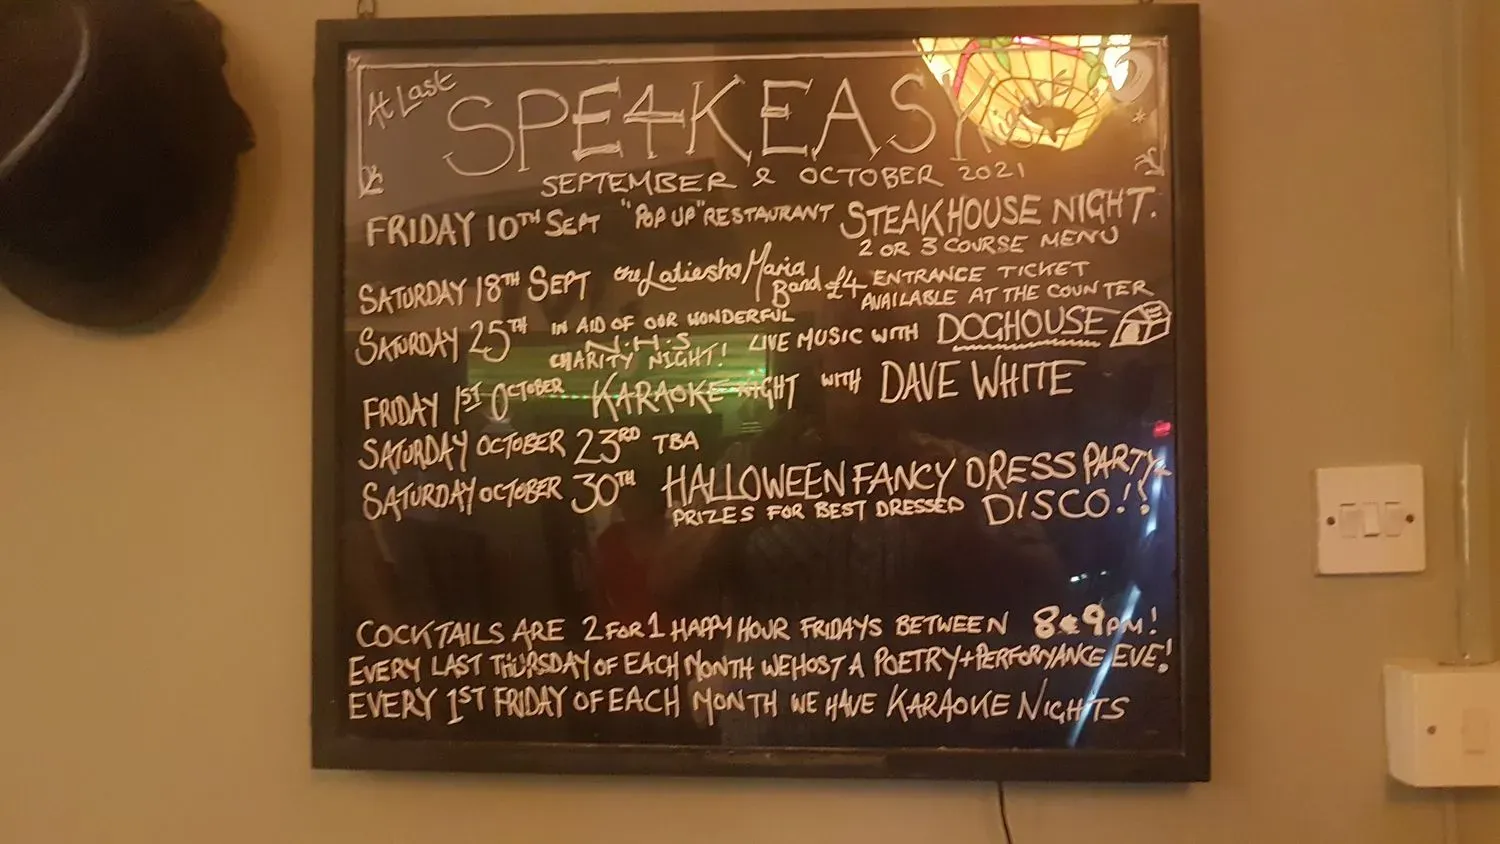 At Last
SPEAKEASY
SEPTEMBER & OCTOBER 2021
FRIDAY 10TH SEPT "POP UP" RESTAURANT STEAKHOUSE NIGHT.
2 OR 3 COURSE MENU
SATURDAY 18TH SEPT the Latiesha Maria Band £4 ENTRANCE TICKET
AVAILABLE AT THE COUNTER
SATURDAY 25TH IN AID OF OUR WONDERFUL
N.H.S
CHARITY NIGHT! LIVE MUSIC WITH DOGHOUSE
FRIDAY 1ST OCTOBER KARAOKE NIGHT WITH DAVE WHITE
SATURDAY OCTOBER 23RD TBA
SATURDAY OCTOBER 30TH HALLOWEEN FANCY DRESS PARTY
PRIZES FOR BEST DRESSED DISCO!!
COCKTAILS ARE 2 FOR 1 HAPPY HOUR FRIDAYS BETWEEN 8 & 9PM!
EVERY LAST THURSDAY OF EACH MONTH WE HOST A POETRY + PERFORMANCE EVE!
EVERY 1ST FRIDAY OF EACH MONTH WE HAVE KARAOKE NIGHTS